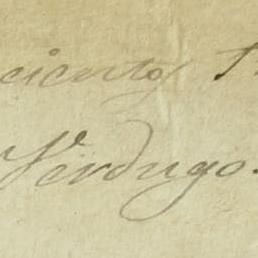 ciento
Verdugo.